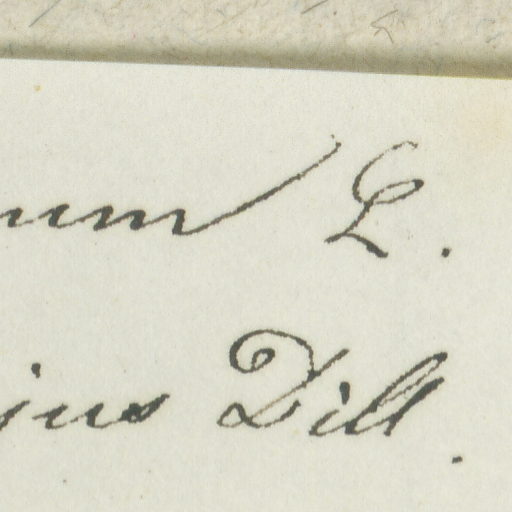 num L.
jus Dill.